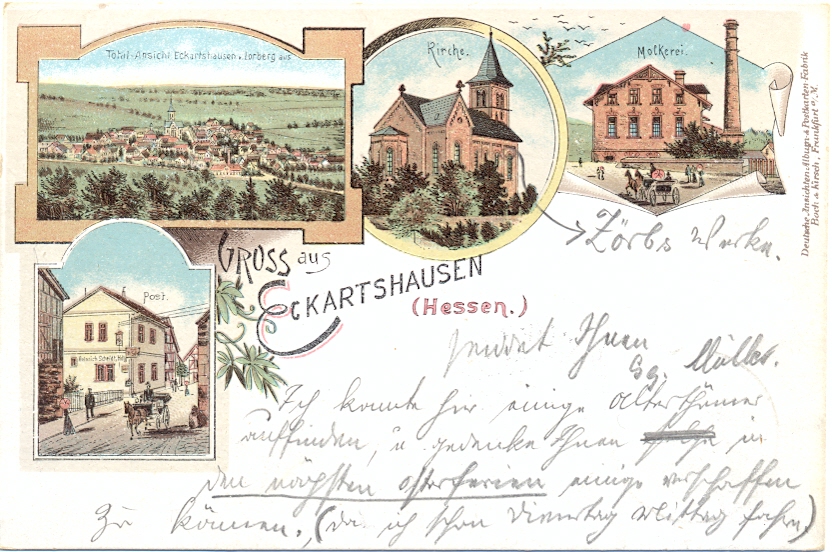 Total-Ansicht Eckartshausen v. Lorberg aus
Kirche.
Molkerei.
Deutsche Ansichten-Album- & Postkarten-Fabrik
Bock & Kirsch, Frankfurt a/M.
Post.
Heinrich Schmidt
→ Zörbs Werke.
GRUSS aus
ECKARTSHAUSEN
(Hessen.)
sendet Ihnen
Gg. Müller.
Ich konnte hier einige Altertümer
auffinden, u gedenke Ihnen in
den nächsten Osterferien einige verschaffen
zu können. (da ich schon Dienstag Mittag fahre)